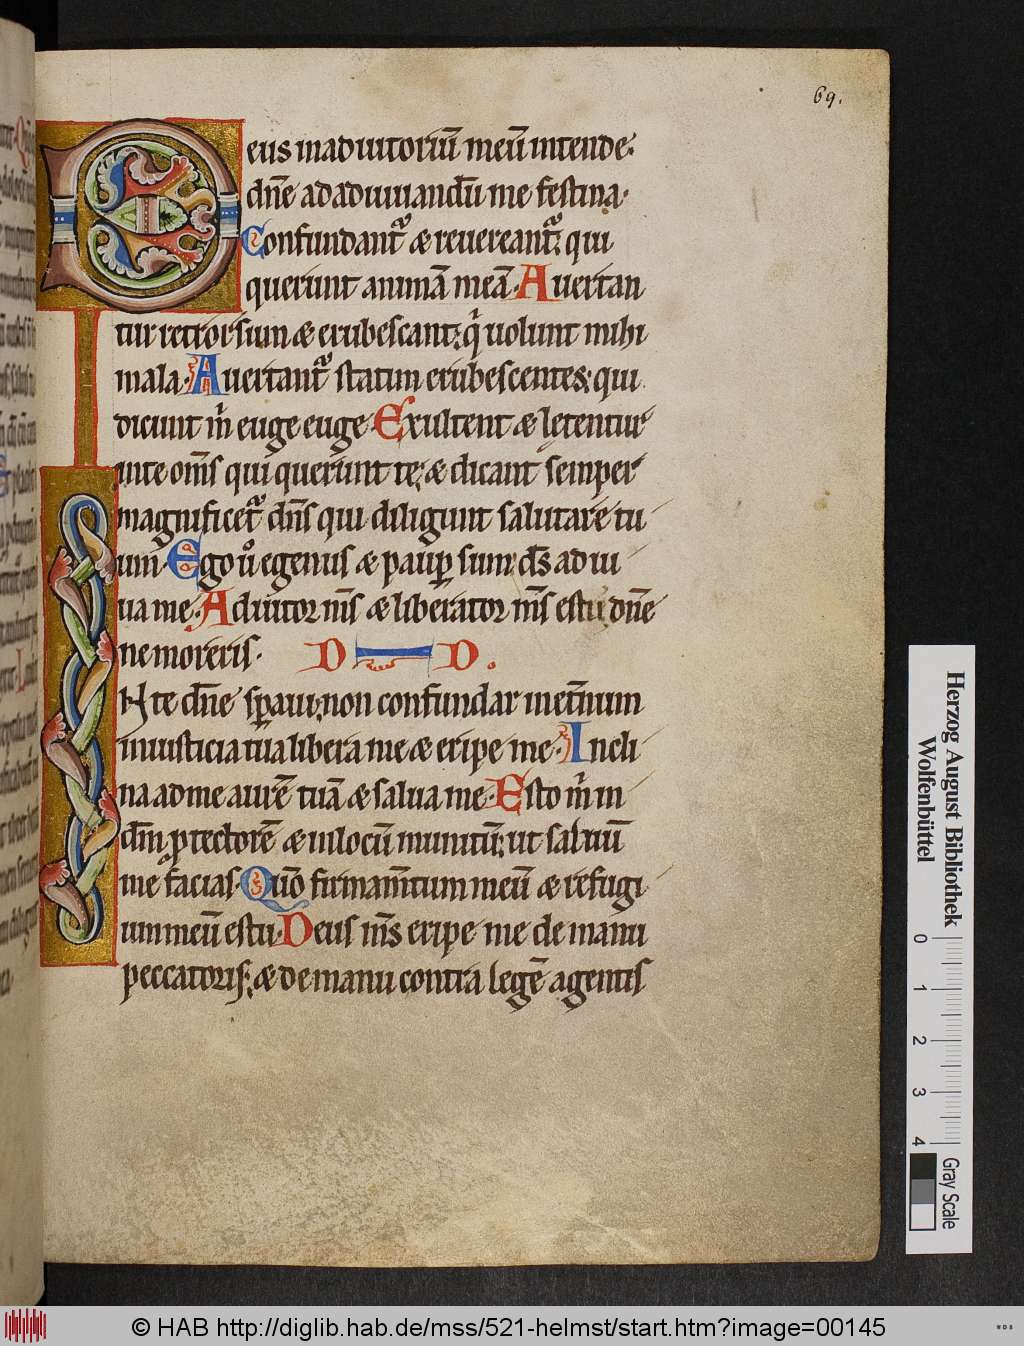 69.
Deus in adiutoriū meū intende;
dn̄e ad adiuuandū me festina.
Confundant᷑ & reuereant᷑; qui
querunt animā meā. Auertan
tur retrorsum & erubescant; q̇ uolunt mihi
mala. Auertant᷑ statim erubescentes; qui
dicunt m̄ euge euge. Exultent & lętentur
in te om̄s qui querunt te; & dicant semper
magnificet᷑ dn̄s qui diligunt salutare tu
um. Ego ů egenus & paup̱ sum; ds̄ adiu
ua me. Adiutor m̄s & liberator m̄s es tu; dn̄e
ne moreris. D D.
IN te dn̄e sp̱aui; non confundar inet̄num
in iusticia tua libera me & eripe me. Incli
na ad me aurē tuā & salua me. Esto m̄ in
dm̄ ꝓtectorē & in locū munitū; ut saluū
me facias. Qm̄o firmam̄tum meū & refugi
um meū es tu. Deus m̄s eripe me de manu
peccatoris; & de manu contra legē agentis
Herzog August Bibliothek
Wolfenbüttel
0 1 2 3 4
Gray Scale
© HAB http://diglib.hab.de/mss/521-helmst/start.htm?image=00145